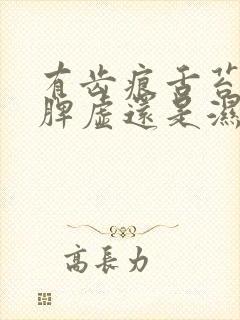 有齿痕舌苔
脾虛還是濕
高長力